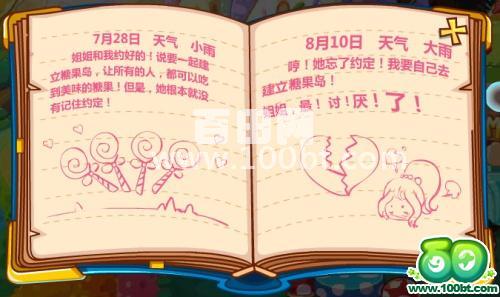 7月28日 天气 小雨
姐姐和我约好的！说要一起建
立糖果岛，让所有的人，都可以吃
到美味的糖果！但是，她根本就没
有记住约定！
8月10日 天气 大雨
哼！她忘了约定！我要自己去
建立糖果岛！
姐姐，最！讨！厌！了！
百田网
www.100bt.com
www.100bt.com